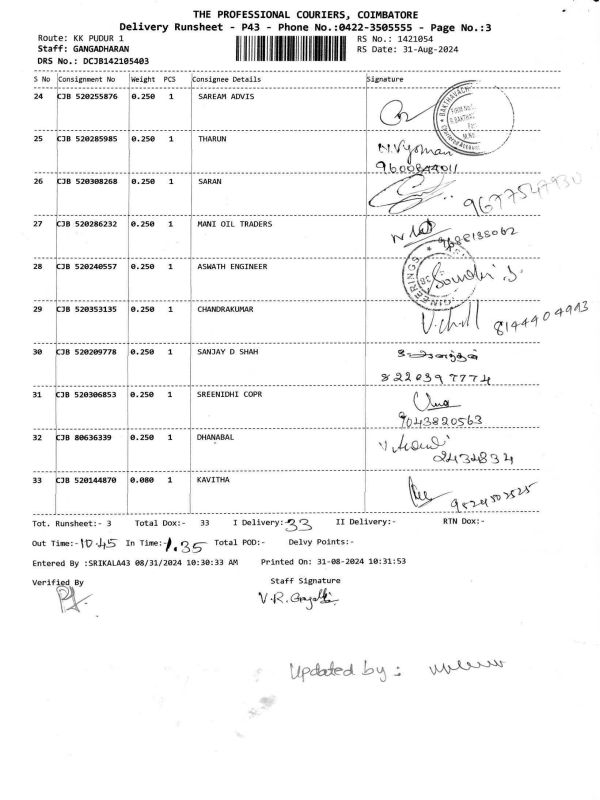 THE PROFESSIONAL COURIERS, COIMBATORE
Delivery Runsheet - P43 - Phone No.:0422-3505555 - Page No.:3
Route: KK PUDUR 1 RS No.: 1421054
Staff: GANGADHARAN RS Date: 31-Aug-2024
DRS No.: DCJB142105403
S No Consignment No Weight PCS Consignee Details Signature
24 CJB 520255876 0.250 1 SAREAM ADVIS
25 CJB 520285985 0.250 1 THARUN N.Vyoman
9600844011
26 CJB 520308268 0.250 1 SARAN
9697547930
27 CJB 520286232 0.250 1 MANI OIL TRADERS
9688138062
28 CJB 520240557 0.250 1 ASWATH ENGINEER
29 CJB 520353135 0.250 1 CHANDRAKUMAR
8144404943
30 CJB 520209778 0.250 1 SANJAY D SHAH
8220397774
31 CJB 520306853 0.250 1 SREENIDHI COPR Uma
9043820563
32 CJB 80636339 0.250 1 DHANABAL
2434834
33 CJB 520144870 0.080 1 KAVITHA
9524502525
Tot. Runsheet:- 3 Total Dox:- 33 I Delivery:- 33 II Delivery:- RTN Dox:-
Out Time:- 10.45 In Time:- 1.35 Total POD:- Delvy Points:-
Entered By :SRIKALA43 08/31/2024 10:30:33 AM Printed On: 31-08-2024 10:31:53
Verified By Staff Signature
Updated by :